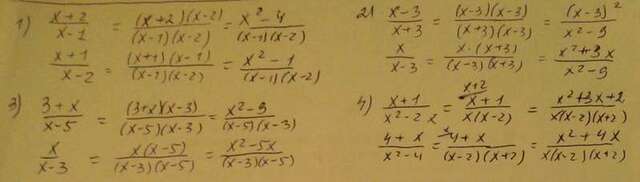 1) (x+2)/(x-1) = ((x+2)(x-2))/((x-1)(x-2)) = (x²-4)/((x-1)(x-2))
(x+1)/(x-2) = ((x+1)(x-1))/((x-1)(x-2)) = (x²-1)/((x-1)(x-2))
2) (x-3)/(x+3) = ((x-3)(x-3))/((x-3)(x+3)) = (x-3)²/(x²-9)
x/(x-3) = (x·(x+3))/((x-3)(x+3)) = (x²+3x)/(x²-9)
3) (3+x)/(x-5) = ((3+x)(x-3))/((x-5)(x-3)) = (x²-9)/((x-5)(x-3))
x/(x-3) = (x(x-5))/((x-3)(x-5)) = (x²-5x)/((x-3)(x-5))
x+2
4) (x+1)/(x²-2x) = (x+1)/(x(x-2)) = (x²+3x+2)/(x(x-2)(x+2))
(4+x)/(x²-4) = ˣ(4+x)/((x-2)(x+2)) = (x²+4x)/(x(x-2)(x+2))